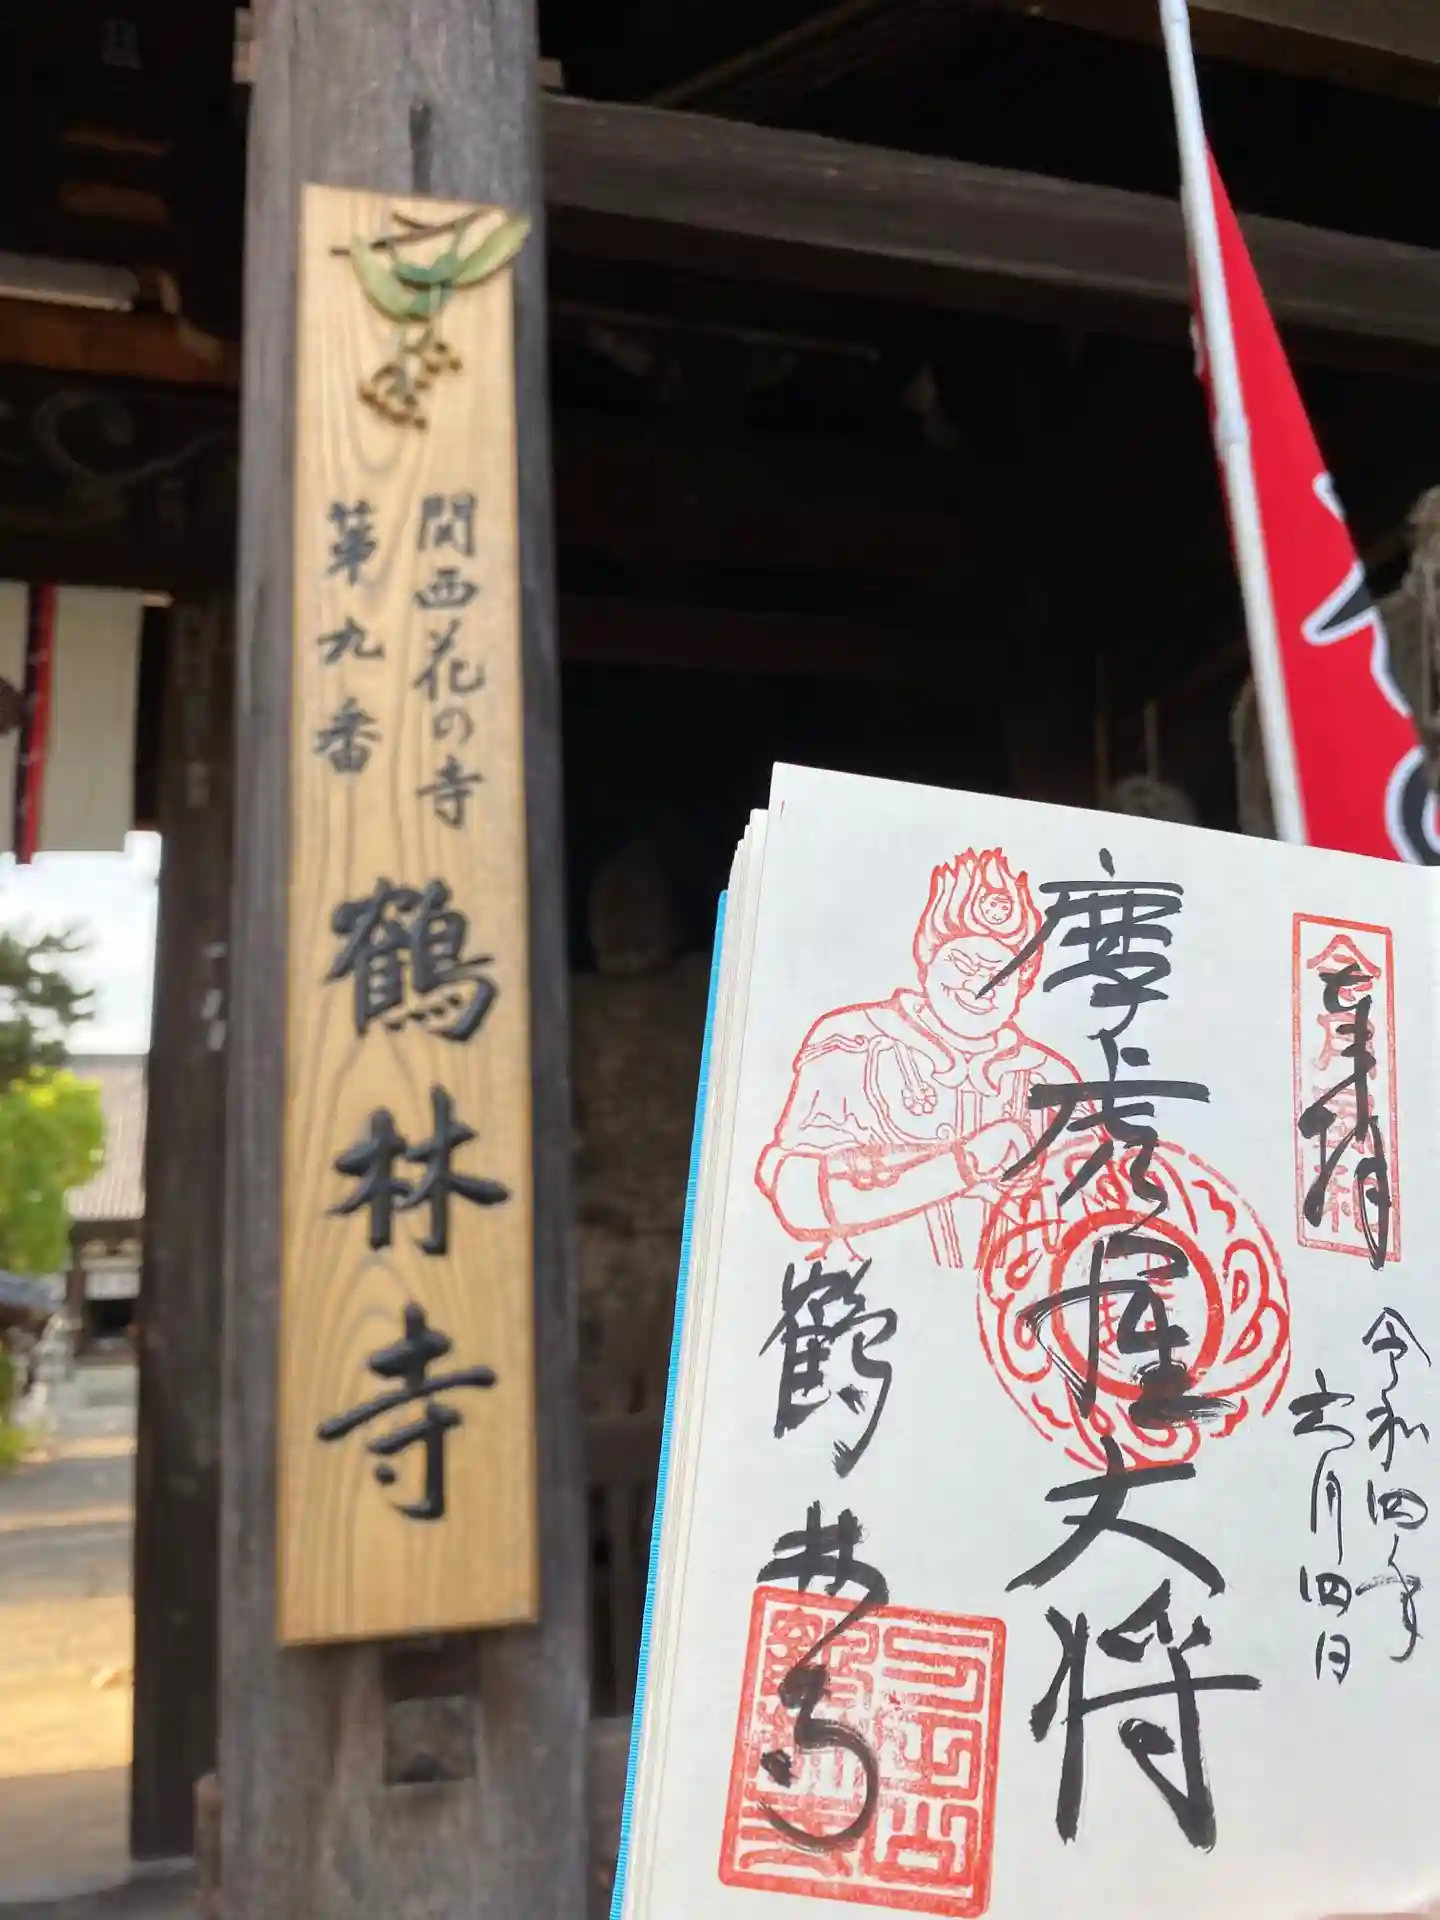 関西花の寺
第九番
鶴林寺
奉拝
令和四年
六月四日
摩虎羅大将
鶴林寺